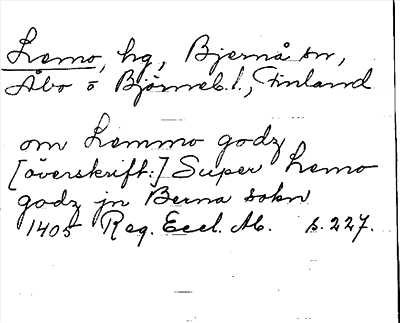 Lemo, hg, Bjernå sn,
Åbo o Björneb. l., Finland
om Lemmo godz
[överskrift:] Super Lemo
godz jn Berna sokn
1405 Reg. Eccl. Ab. s. 227.